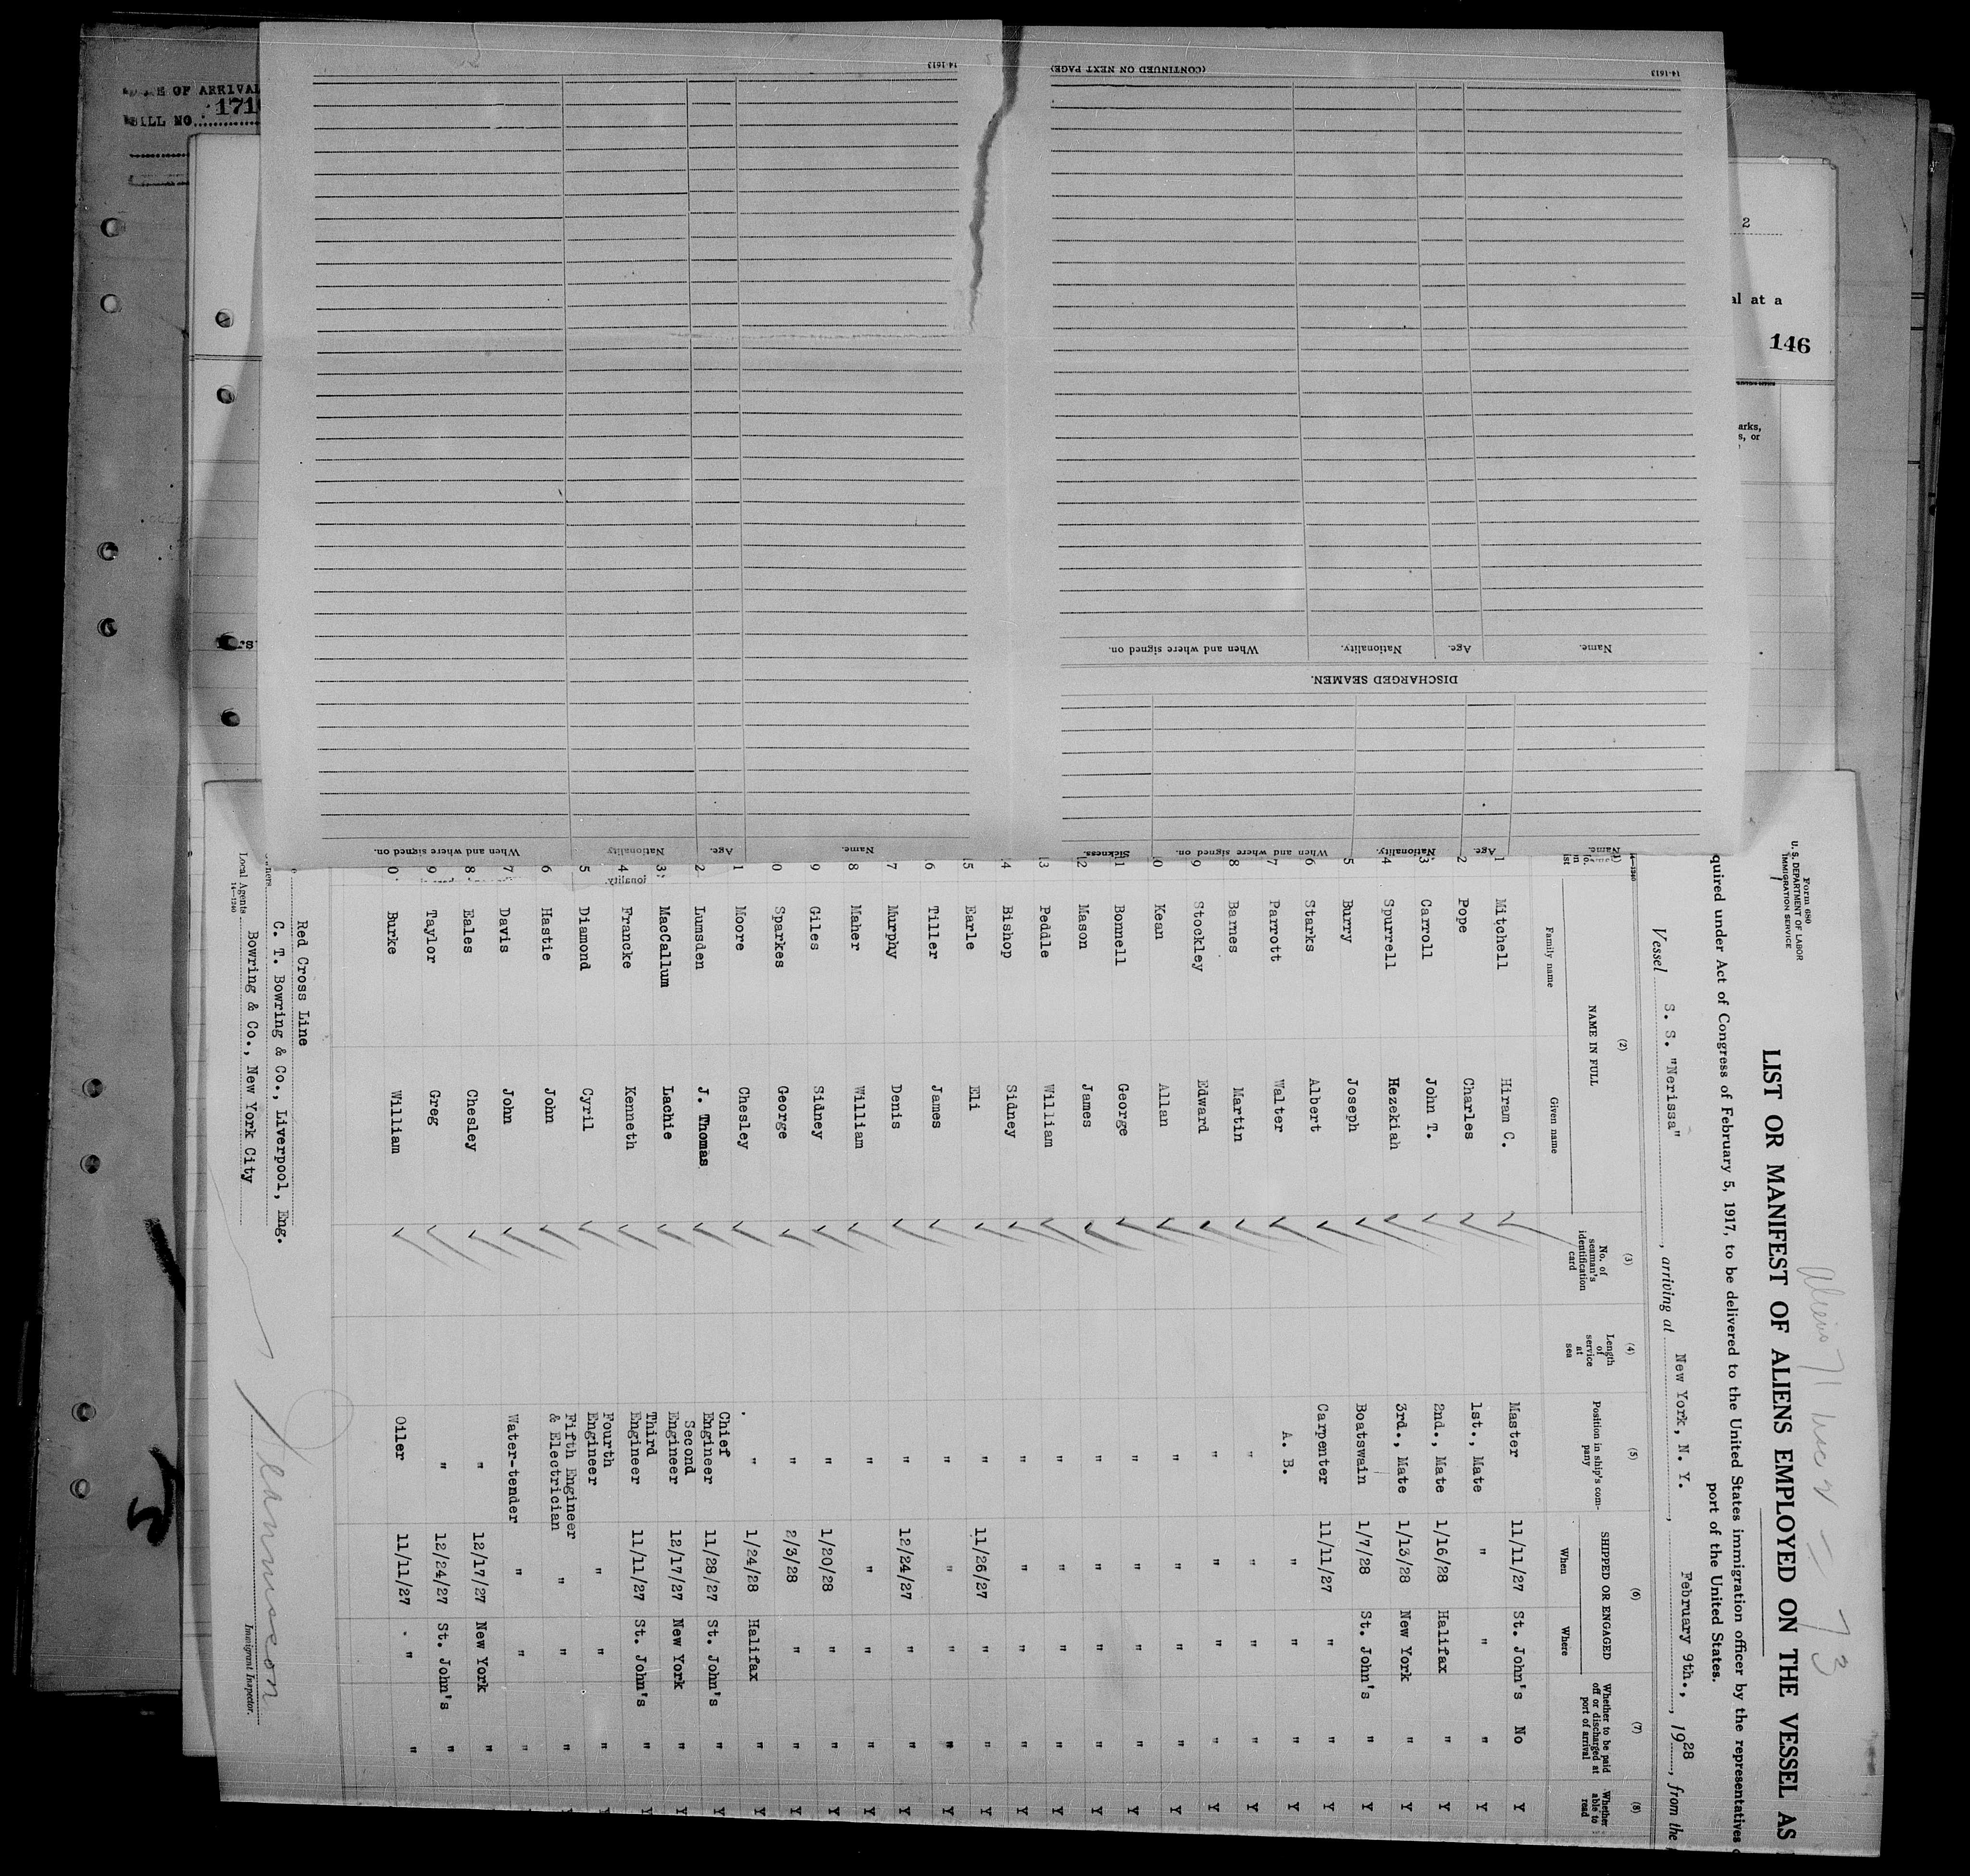 DATE OF ARRIVAL
BILL NO. 171
2
al at a
146
arks,
s, or
14-1613
(CONTINUED ON NEXT PAGE)
14-1613
Name. Age. Nationality. When and where signed on.
DISCHARGED SEAMEN.
Name. Age. Nationality. When and where signed on. Sickness.
Name. Age. Nationality When and where signed on.
Form 680
U. S. DEPARTMENT OF LABOR
IMMIGRATION SERVICE
Aliens 71
73
LIST OR MANIFEST OF ALIENS EMPLOYED ON THE VESSEL AS
quired under Act of Congress of February 5, 1917, to be delivered to the United States immigration officer by the representatives
port of the United States.
Vessel S. S. "Nerissa", arriving at New York, N. Y., February 9th., 1928, from the
(2) (3) (4) (5) (6) (7) (8)
NAME IN FULL No. of seaman's identification card Length of service at sea Position in ship's company SHIPPED OR ENGAGED Whether to be paid off or discharged at port of arrival Whether able to read
Family name Given name When Where
1 Mitchell Hiram C. Master 11/11/27 St. John's No Y
2 Pope Charles 1st., Mate " " " Y
3 Carroll John T. 2nd., Mate 1/16/28 Halifax " Y
4 Spurrell Hezekiah 3rd., Mate 1/13/28 New York " Y
5 Burry Joseph Boatswain 1/7/28 St. John's " Y
6 Starks Albert Carpenter 11/11/27 " " Y
7 Parrott Walter A. B. " " " Y
8 Barnes Martin " " " " Y
9 Stockley Edward " " " " Y
0 Kean Allan " " " " Y
1 Bonnell George " " " " Y
2 Mason James " " " " Y
3 Peddle William " " " " Y
4 Bishop Sidney " " " " Y
5 Earle Eli " 11/26/27 " " Y
6 Tiller James " " " " Y
7 Murphy Denis " 12/24/27 " " Y
8 Maher William " " " " Y
9 Giles Sidney " 1/20/28 " " Y
0 Sparkes George " 2/3/28 " " Y
1 Moore Chesley " 1/24/28 Halifax " Y
2 Lumsden J. Thomas Chief Engineer 11/28/27 St. John's " Y
3 MacCallum Lachie Second Engineer 12/17/27 New York " Y
4 Francke Kenneth Third Engineer 11/11/27 St. John's " Y
5 Diamond Cyril Fourth Engineer " " " Y
6 Hastie John Fifth Engineer & Electrician " " " Y
7 Davis John Water-tender " " " Y
8 Eales Chesley " 12/17/27 New York " Y
9 Taylor Greg " 12/24/27 St. John's " Y
0 Burke William Oiler 11/11/27 " " Y
Red Cross Line
C. T. Bowring & Co., Liverpool, Eng.
Local Agents Bowring & Co., New York City
14-1240
Immigrant Inspector.